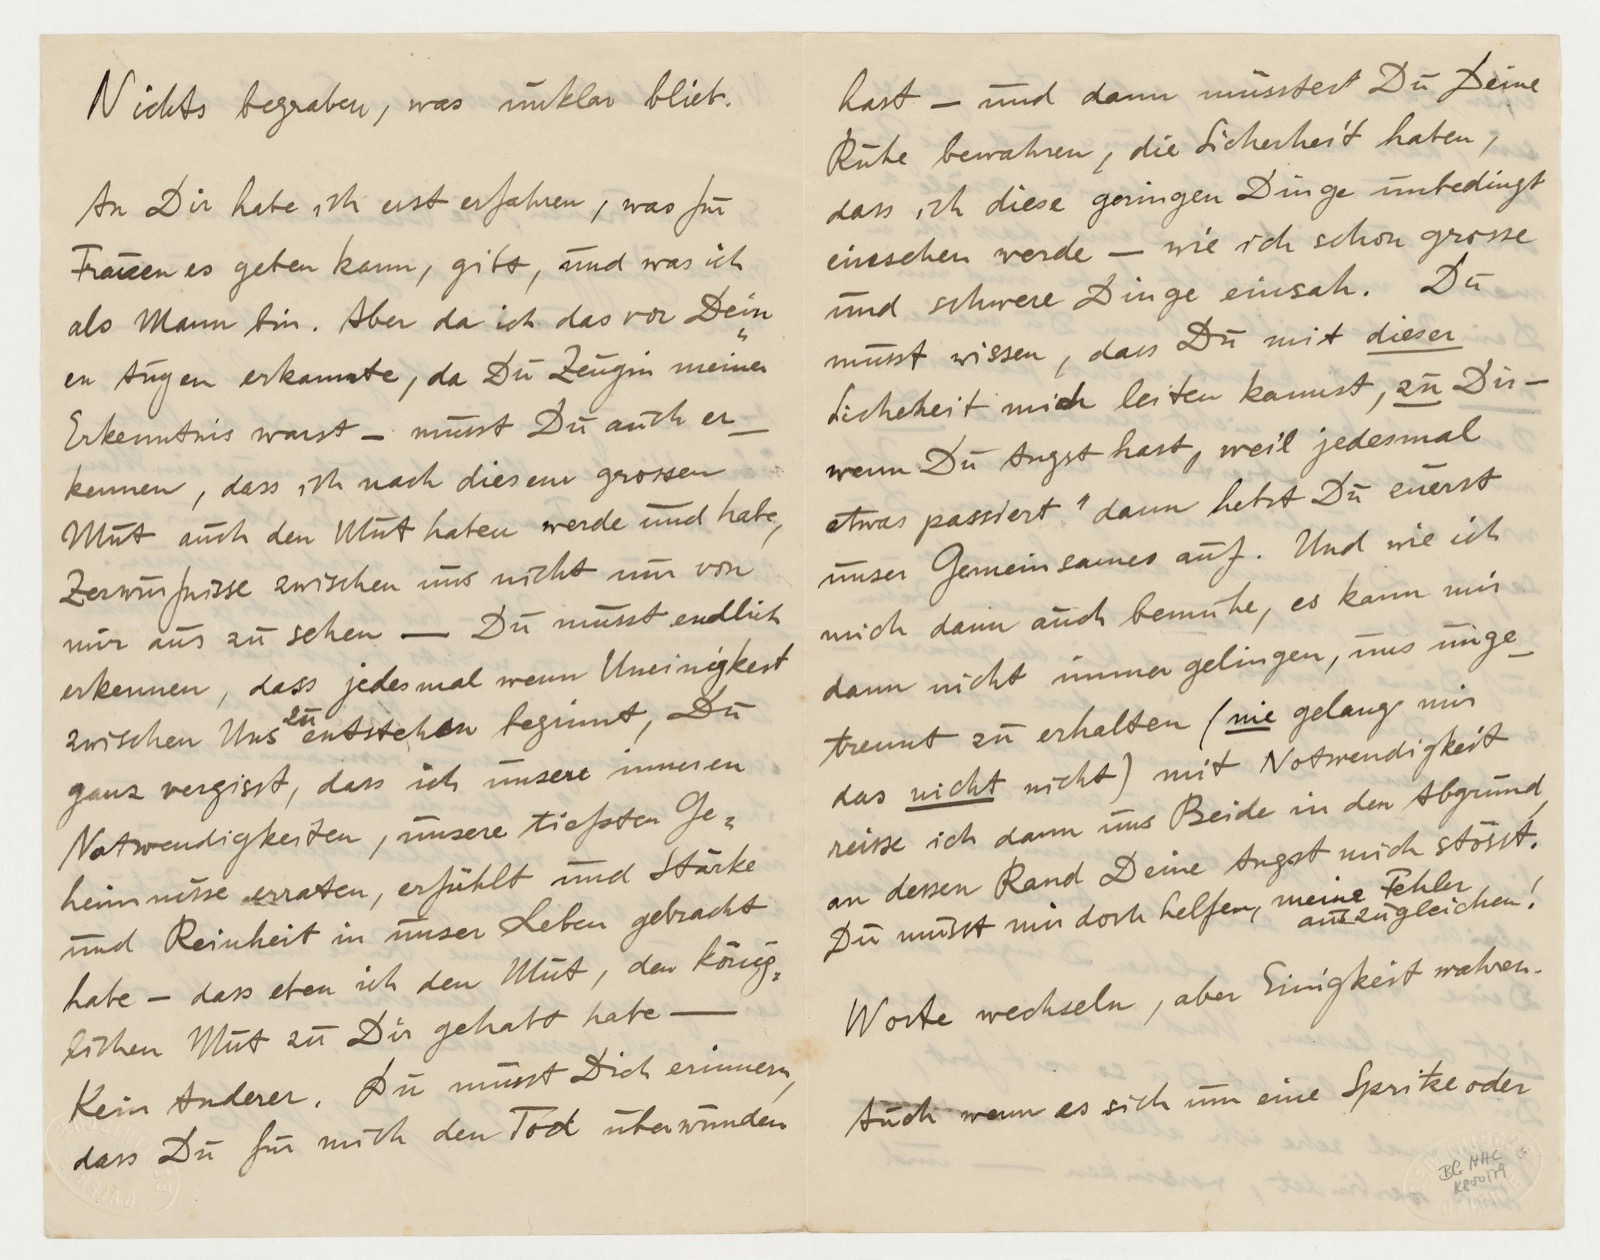 Nichts begraben, was unklar blieb.
An Dir habe ich erst erfahren, was für
Frauen es geben kann, gibt, und was ich
als Mann bin. Aber da ich das vor Dein„
en Augen erkannte, da Du Zeugin meiner
Erkenntnis warst – musst Du auch er_
kennen, dass ich nach diesem grossen
Mut auch den Mut haben werde und habe,
Zerwürfnisse zwischen uns nicht nur von
mir aus zu sehen — Du musst endlich
erkennen, dass jedesmal wenn Uneinigkeit
zwischen Uns zu entstehen beginnt, Du
ganz vergisst, dass ich unsere inneren
Notwendigkeiten, unsere tiefsten Ge=
heimnisse erraten, erfühlt und Stärke
und Reinheit in unser Leben gebracht
habe – dass eben ich den Mut, den könig=
lichen Mut zu Dir gehabt habe —
Kein Anderer. Du musst Dich erinnern,
dass Du für mich den Tod überwunden
hast – und dann müsstest Du Deine
Ruhe bewahren, die Sicherheit haben,
dass ich diese geringen Dinge unbedingt
einsehen werde – wie ich schon grosse
und schwere Dinge einsah. Du
musst wissen, dass Du mit dieser
Sicheheit mich leiten kannst, zu Dir –
wenn Du Angst hast, weil jedesmal
etwas passiert" dann hebst Du zuerst
unser Gemeinsames auf. Und wie ich
mich dann auch bemühe, es kann mir
dann nicht immer gelingen, uns unge_
trennt zu erhalten (nie gelang mir
das nicht nicht) mit Notwendigkeit
reisse ich dann uns Beide in den Abgrund,
an dessen Rand Deine Angst mich stösst.
Du musst mir doch helfen, meine Fehler
auszugleichen!
Worte wechseln, aber Einigkeit wahren.
Auch wenn es sich um eine Spritze oder
BG HHC
K800/79